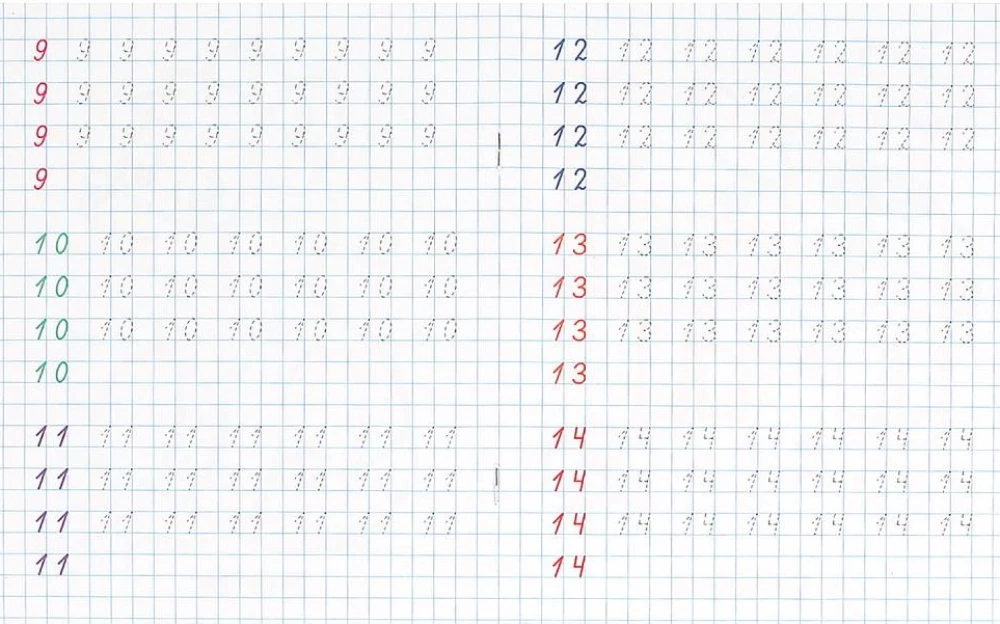 9 9 9 9 9 9 9 9 9 9
9 9 9 9 9 9 9 9 9 9
9 9 9 9 9 9 9 9 9 9
9
10 10 10 10 10 10 10
10 10 10 10 10 10 10
10 10 10 10 10 10 10
10
11 11 11 11 11 11 11
11 11 11 11 11 11 11
11 11 11 11 11 11 11
11
12 12 12 12 12 12 12
12 12 12 12 12 12 12
12 12 12 12 12 12 12
12
13 13 13 13 13 13 13
13 13 13 13 13 13 13
13 13 13 13 13 13 13
13
14 14 14 14 14 14 14
14 14 14 14 14 14 14
14 14 14 14 14 14 14
14